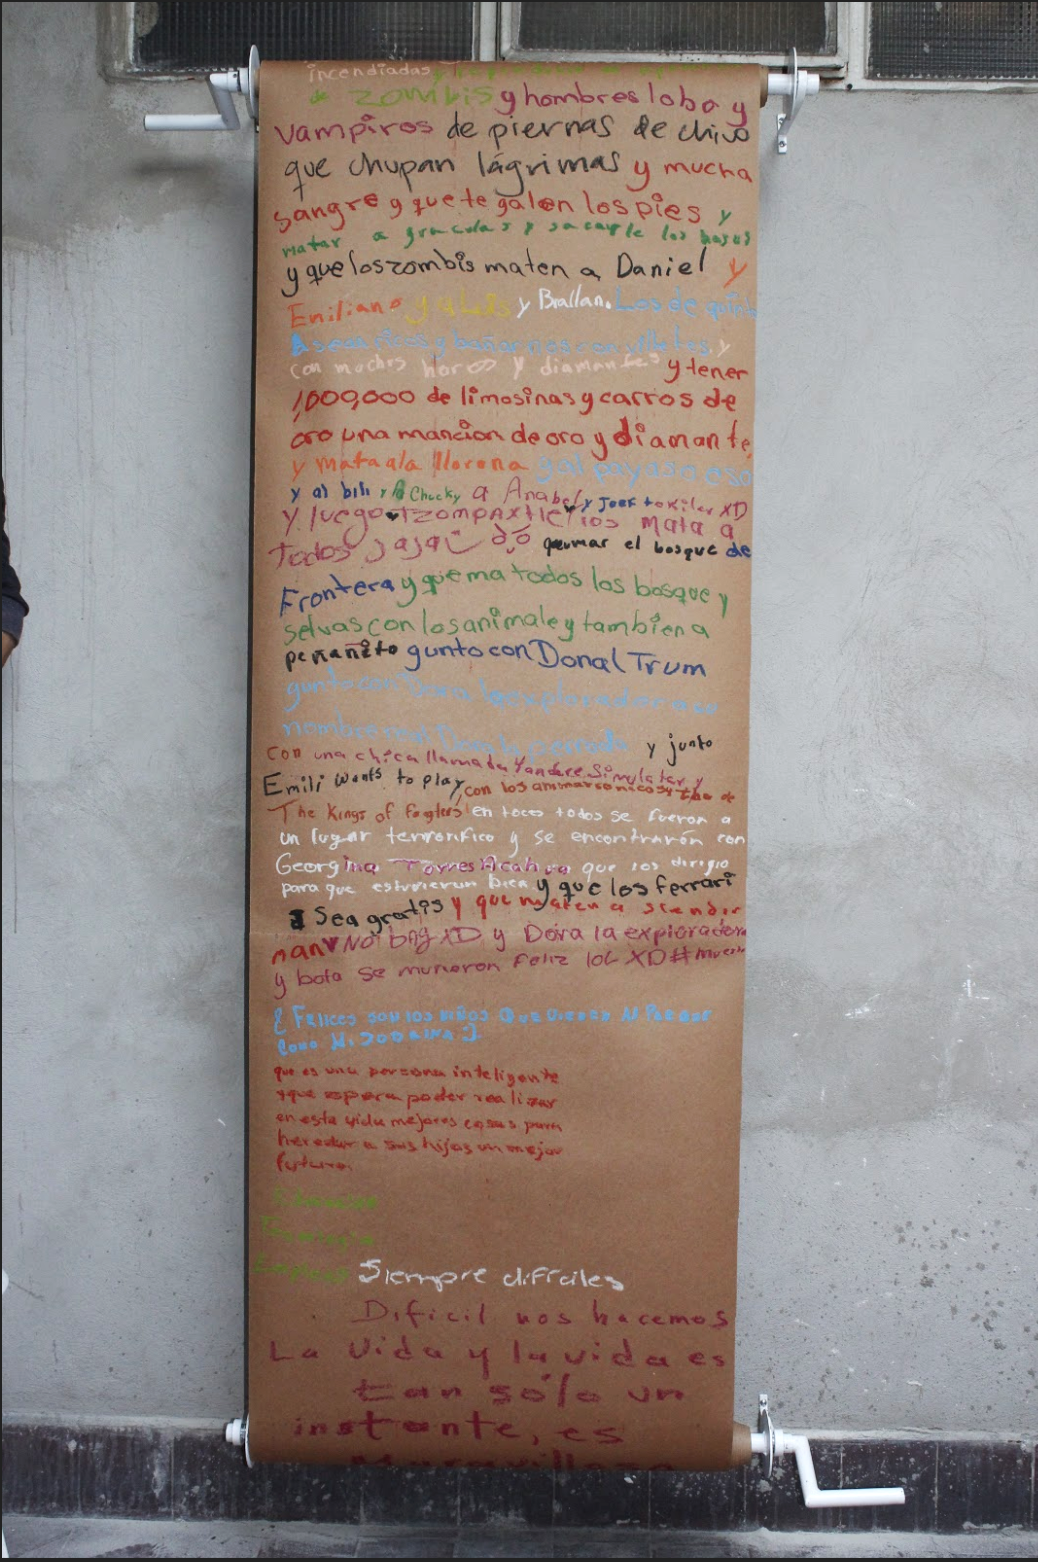 incendiadas
de zombis y hombres lobo y
vampiros de piernas de chivo
que chupan lágrimas y mucha
sangre y que te galen los pies y
matar a graculas y sacarle los
y que los zombis maten a Daniel y
Emiliano y a Luis y Brallan. Los de
sean ricos y bañarnos con villetes y
con muchos horos y diamantes y tener
1,000,000 de limosinas y carros de
oro una mancion de oro y diamante,
y mata a la llorona y al payaso eso
y al bili y a Chucky a Anabel y Jeef to Kiler XD
y luego Tzompaxtle los mata a
todos jajaj quemar el bosque de
Frontera y quema todos los bosque y
selvas con los animale y tambien a
peñañito gunto con Donal Trum
gunto con Dora la exploradora
nombre
y junto
con una chica llamada Yandere Simulator y
Emili wants to play, con los
The Kings of en toces todos se fueron a
un lugar terrorifico y se encontrarón con
Georgina Torres Acahua que los dirigio
para que estuvieran bien y que los ferrari
Sea gratis y que maten a slender
man y Not bay XD y Dora la exploradora
y bota se murieron Feliz lol XD #
{ Felices son los niños Que Vienen Al Parque
Como
que es una persona inteligente
y que espera poder realizar
en esta vida mejores cosas para
heredar a sus hijos un mejor
futuro.
Siempre difíciles
Dificil nos hacemos
La Vida y la vida es
tan sólo un
instante, es
Maravillosa